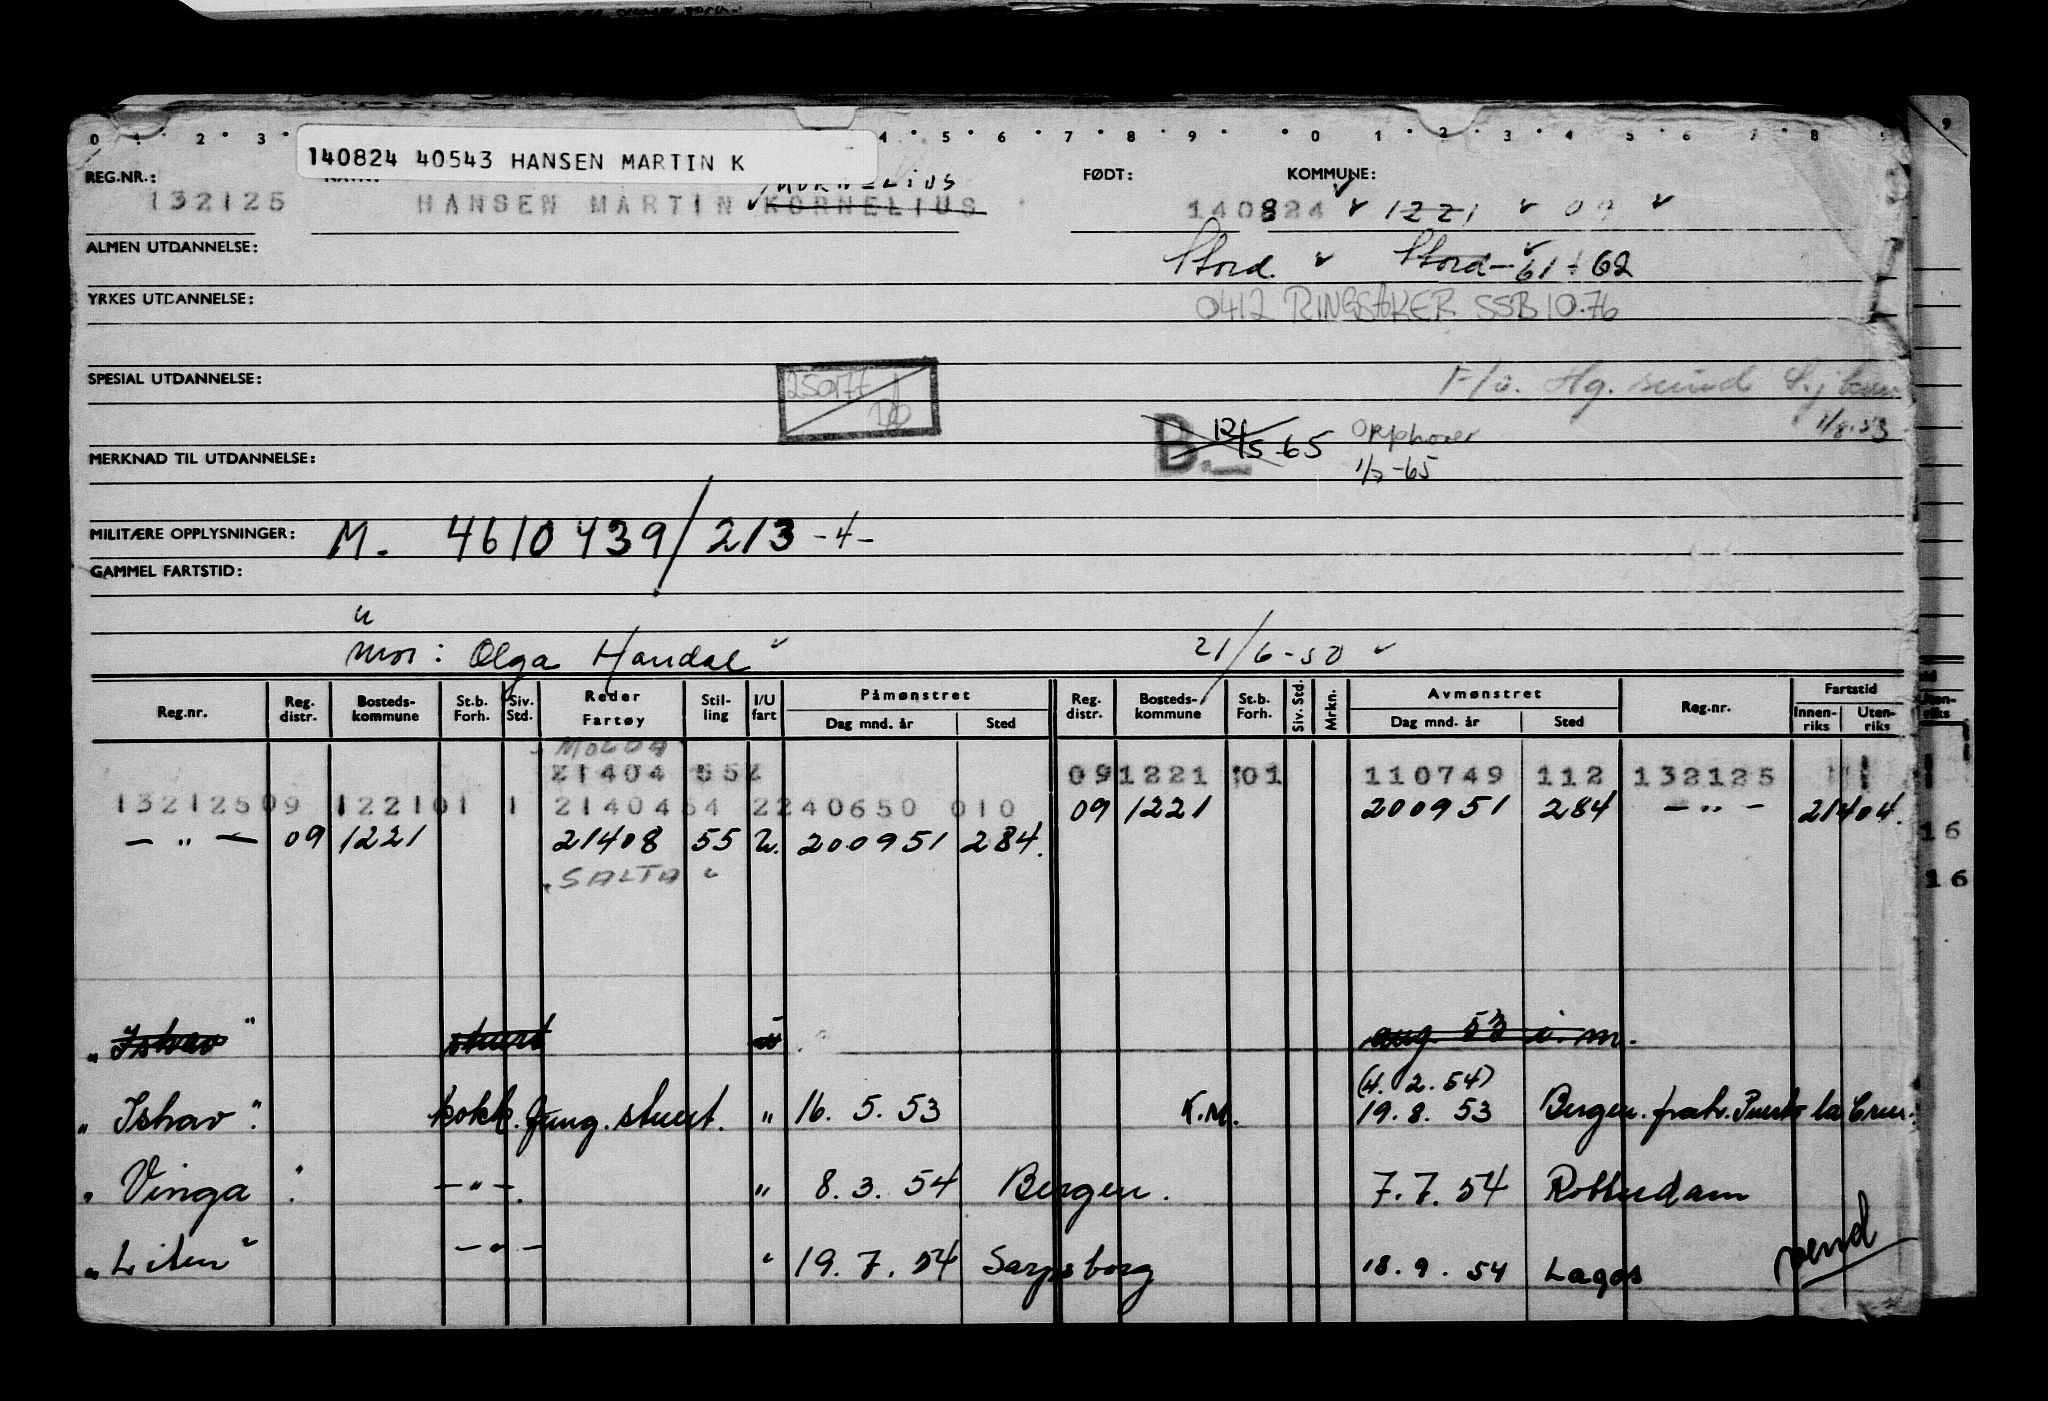 0 1 2 3 4 5 6 7 8 9 0 1 2 3 4 5 6 7 8 9
140824 40543 HANSEN MARTIN K
REG.NR.: FØDT: KOMMUNE:
132125 HANSEN MARTIN KORNELIUS 140824 1221 09
ALMEN UTDANNELSE: Stord. Stord - 61 - 62
YRKES UTDANNELSE: 0412 RINGSAKER SSB 10.76
SPESIAL UTDANNELSE: 250177 F/v. Hg.sund
1/8.53
B. 12/5-65 Opphører
MERKNAD TIL UTDANNELSE: -65
MILITÆRE OPPLYSNINGER: M. 4610439/213 -4-
GAMMEL FARTSTID:
mor: Olga Handal 21/6-50
Reg.nr. Reg. distr. Bosteds-kommune St.b. Forh. Siv. Std. Reder Fartøy Stil-ling I/U fart Påmønstret Dag mnd. år Sted Reg. distr. Bosteds-kommune St.b. Forh. Siv. Std. Mrkn. Avmønstret Dag mnd. år Sted Reg.nr. Fartstid Innen-riks Uten-riks
MOLDA
21404 552 09 1221 01 110749 112 132125
132125 09 1221 01 1 21404 54 2 240650 010 09 1221 200951 284 - " - 21404.
- " - 09 1221 21408 55 U. 200951 284.
SALTA
" Ishav " stuert aug. 53 i. m.
(4. 2. 54)
" Ishav ". kokk. Jung. stuert. " 16. 5. 53 K.M. 19. 8. 53 Bergen. fratr. Puerto la Cruz.
" Vinga ". - " - . " 8. 3. 54 Bergen. 7. 7. 54 Rotterdam
" Liten " - " - " 19. 7. 54 Sarpsborg 18. 9. 54 Lagos
vend